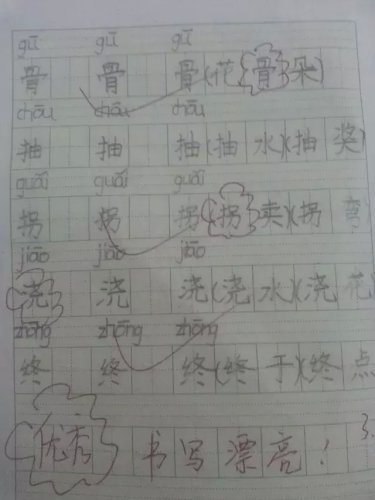 gū gū gū
骨 骨 骨(花骨朵)
chōu chōu chōu
抽 抽 抽(抽水)(抽奖)
guǎi guǎi guǎi
拐 拐 拐(拐卖)(拐弯)
jiāo jiāo jiāo
浇 浇 浇(浇水)(浇花)
zhōng zhōng zhōng
终 终 终(终于)(终点
优秀 书写漂亮! 3.